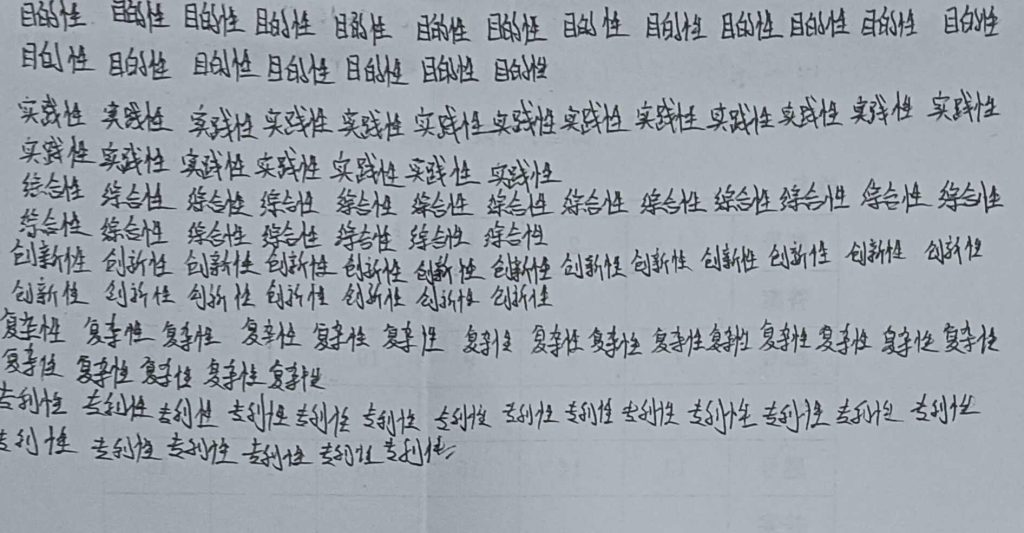 目的性 目的性 目的性 目的性 目的性 目的性 目的性 目的性 目的性 目的性 目的性 目的性 目的性
目的性 目的性 目的性 目的性 目的性 目的性 目的性
实践性 实践性 实践性 实践性 实践性 实践性 实践性 实践性 实践性 实践性 实践性 实践性 实践性
实践性 实践性 实践性 实践性 实践性 实践性 实践性
综合性 综合性 综合性 综合性 综合性 综合性 综合性 综合性 综合性 综合性 综合性 综合性 综合性
综合性 综合性 综合性 综合性 综合性 综合性 综合性
创新性 创新性 创新性 创新性 创新性 创新性 创新性 创新性 创新性 创新性 创新性 创新性 创新性
创新性 创新性 创新性 创新性 创新性 创新性 创新性
复杂性 复杂性 复杂性 复杂性 复杂性 复杂性 复杂性 复杂性 复杂性 复杂性 复杂性 复杂性 复杂性 复杂性 复杂性
复杂性 复杂性 复杂性 复杂性 复杂性
专利性 专利性 专利性 专利性 专利性 专利性 专利性 专利性 专利性 专利性 专利性 专利性 专利性 专利性
专利性 专利性 专利性 专利性 专利性 专利性